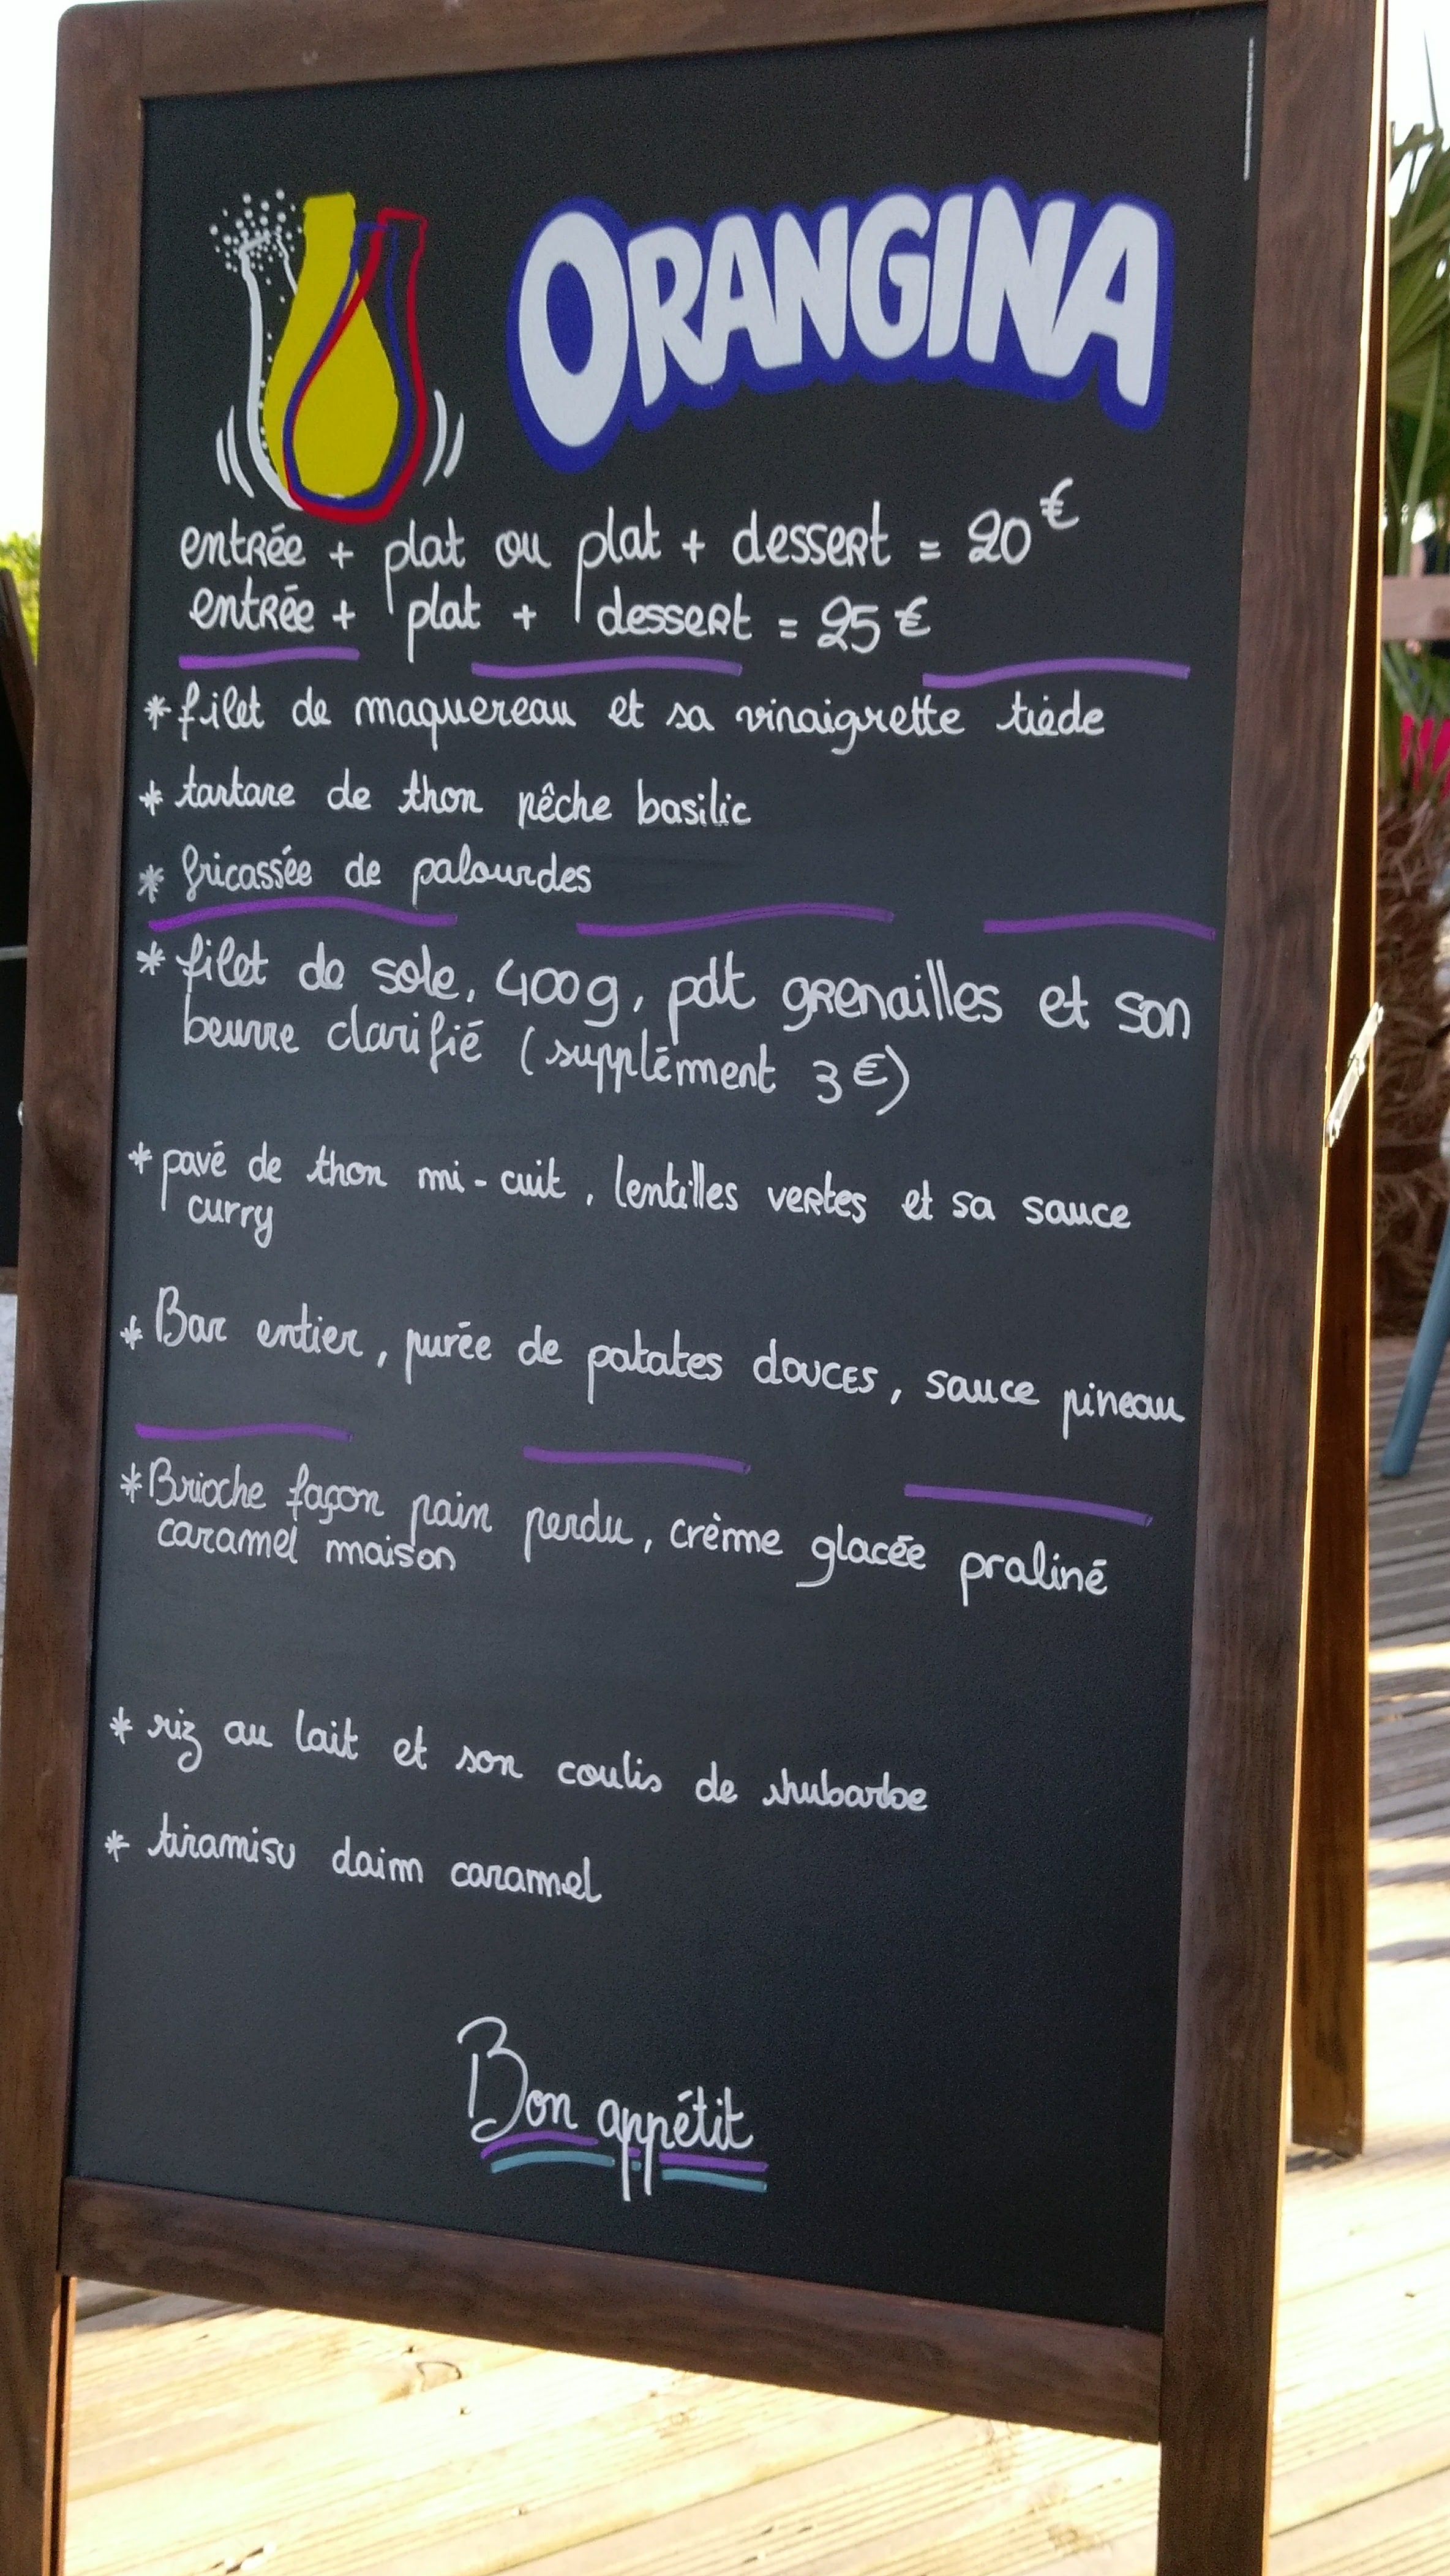 ORANGINA
entrée + plat ou plat + dessert = 20€
entrée + plat + dessert = 25€
* filet de maquereau et sa vinaigrette tiède
* tartare de thon pêche basilic
* fricassée de palourdes
* filet de sole, 400g, pdt grenailles et son
beurre clarifié (supplément 3€)
* pavé de thon mi-cuit, lentilles vertes et sa sauce
curry
* Bar entier, purée de patates douces, sauce pineau
* Brioche façon pain perdu, crème glacée praliné
caramel maison
* riz au lait et son coulis de rhubarbe
* tiramisu daim caramel
Bon appétit